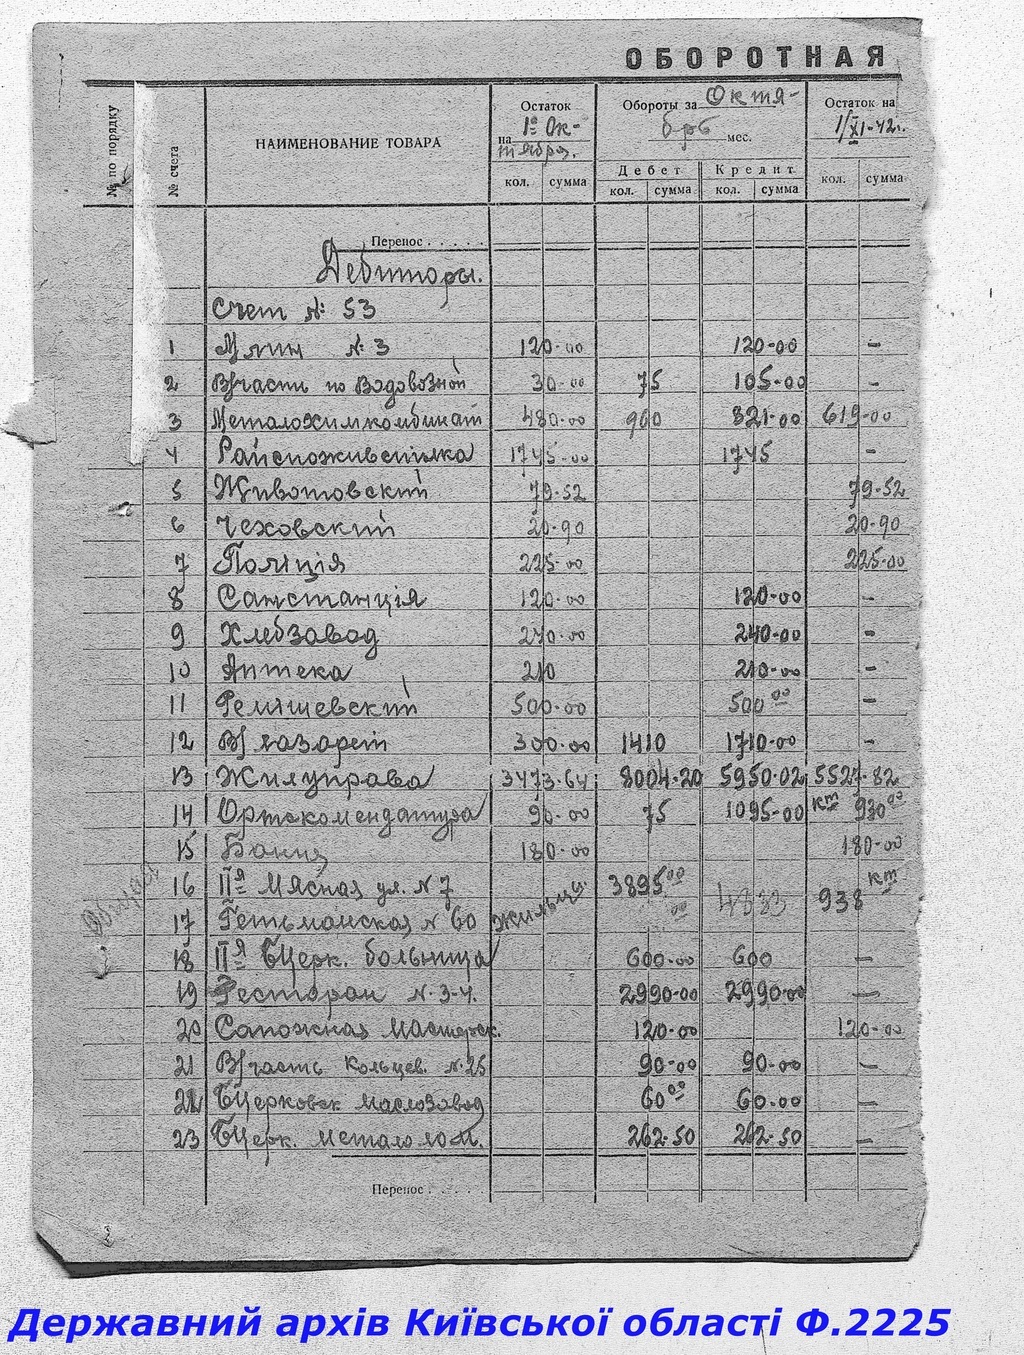 ОБОРОТНАЯ
№ по порядку
№ счета
НАИМЕНОВАНИЕ ТОВАРА
Остаток на 1го Октября.
кол. сумма
Обороты за Октябрь мес.
Дебет Кредит
кол. сумма кол. сумма
Остаток на 1/XI-42г.
кол. сумма
Перенос . . . . .
Дебиторы.
Счет № 53
1 Млин № 3 120-00 120-00 –
2 В/части по Водовозной 30-00 75 105-00 –
3 Металохимкомбинат 480-00 960 821-00 619-00
4 Райспоживспілка 1745-00 1745 –
5 Животовский 79-52 79-52
6 Чеховский 20-90 20-90
7 Поліція 225-00 225-00
8 Санстанція 120-00 120-00 –
9 Хлебзавод 240-00 240-00 –
10 Аптека 210 210-00 –
11 500-00 500 00 –
12 В/лазарет 300-00 1410 1710-00 –
13 Жилуправа 3473-64 8004-20 5950-02 5527-82
14 Ортскомендатура 90-00 75 1095-00 кт 930 00
15 Банця 180-00 180-00
16 IIя Мясная ул. № 7 3895 00 938 кт
17 Гетьманская № 60 жильцы 00 4833
18 IIя БЦерк. больница 600-00 600 –
19 Ресторан № 3-4. 2990-00 2990-00 –
20 Сапожная мастерск. 120-00 120-00
21 В/часть Кольцев. № 25 90-00 90-00 –
22 БЦерковск маслозавод 60 00 60-00 –
23 БЦерк. металолом. 262-50 262-50 –
Перенос . . . . .
Державний архів Київської області Ф.2225